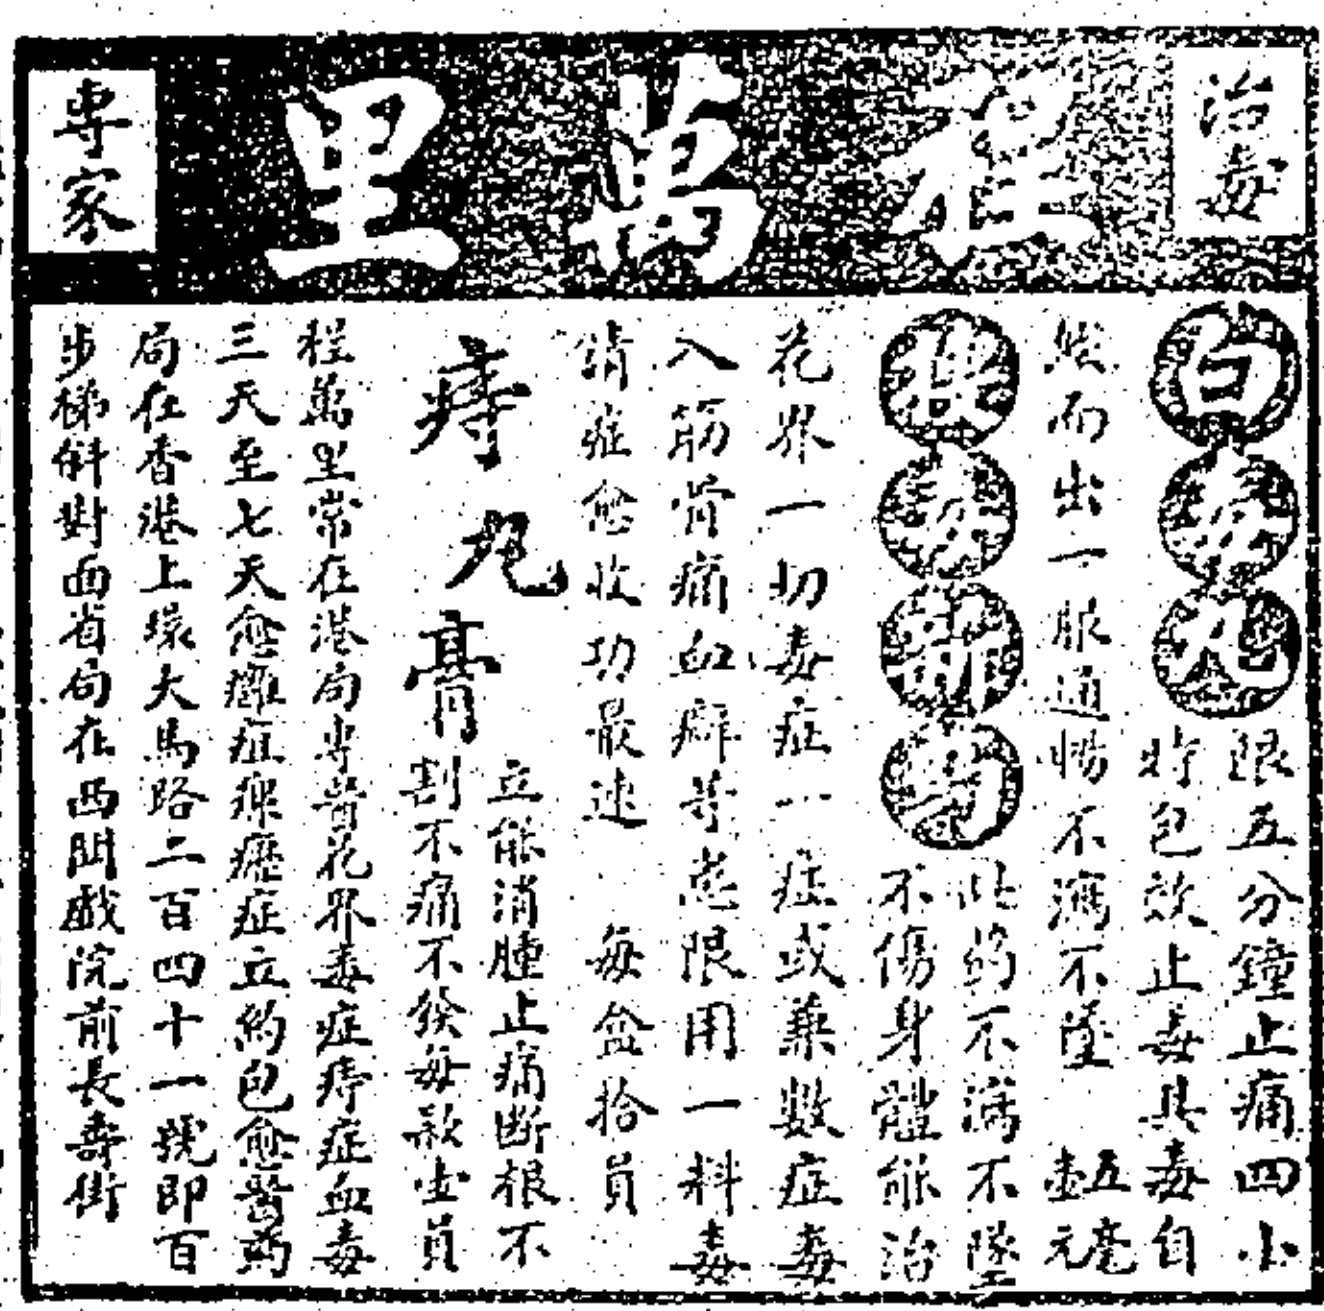 治毒
程萬里
專家
白濁丸
限五分鐘止痛四小
時包效止毒其毒自
然而出一服通暢不瀉不墜
五毫
壹元
此药不瀉不墜
不傷身體能治
花界一切毒症一症或兼數症毒
入筋骨痛血癖等患限用一料毒
清症愈收功最速 每盒拾員
痔丸膏
立能消腫止痛断根不
割不痛不發每款壹員
程萬里常在港局專醫花界毒症痔症血毒
三天至七天愈癰疽瘰癧症立約包愈醫药
局在香港上環大馬路二百四十一號即百
步梯斜對面省局在西關戲院前長壽街